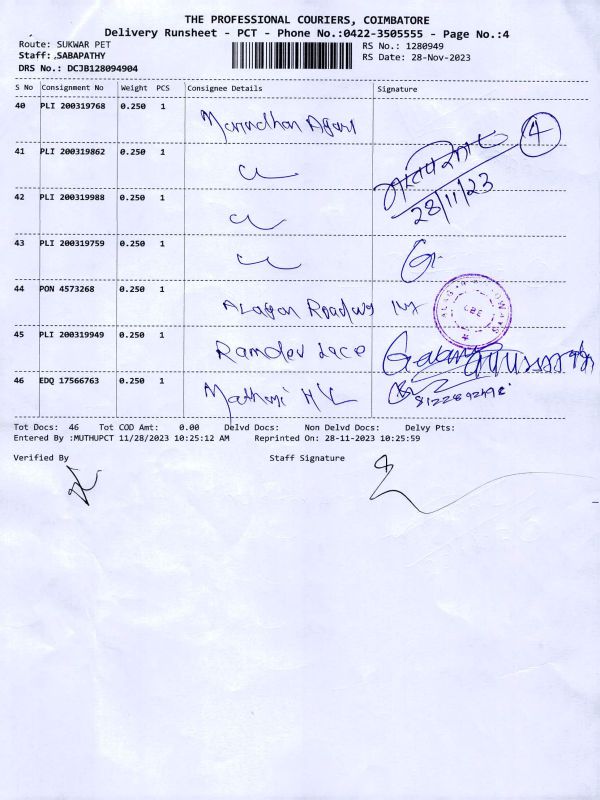 THE PROFESSIONAL COURIERS, COIMBATORE
Delivery Runsheet - PCT - Phone No.:0422-3505555 - Page No.:4
Route: SUKWAR PET RS No.: 1280949
Staff: SABAPATHY RS Date: 28-Nov-2023
DRS No.: DCJB128094904
S No Consignment No Weight PCS Consignee Details Signature
40 PLI 200319768 0.250 1
4
41 PLI 200319862 0.250 1
28/11/23
42 PLI 200319988 0.250 1
43 PLI 200319759 0.250 1
44 PON 4573268 0.250 1 Alagan Roadways CBE
45 PLI 200319949 0.250 1 Ramdev Lace
46 EDQ 17566763 0.250 1
Tot Docs: 46 Tot COD Amt: 0.00 Delvd Docs: Non Delvd Docs: Delvy Pts:
Entered By :MUTHUPCT 11/28/2023 10:25:12 AM Reprinted On: 28-11-2023 10:25:59
Verified By Staff Signature